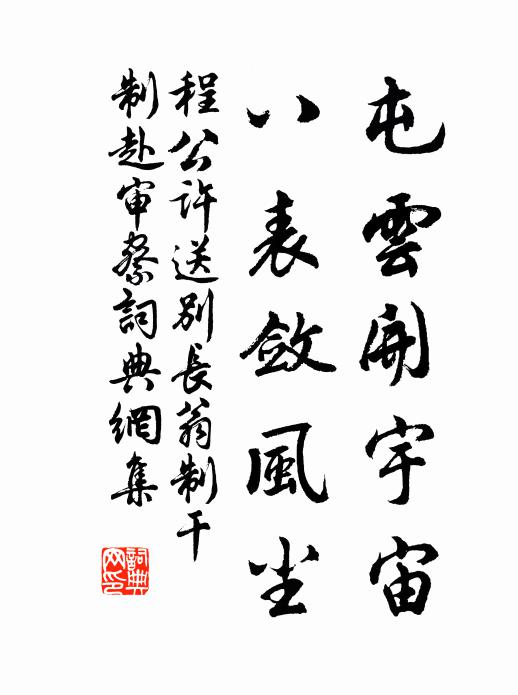 屯雲開宇宙
八表斂風尘
程公许送别長翁制干
制赴审察詞典網集
詞典网印